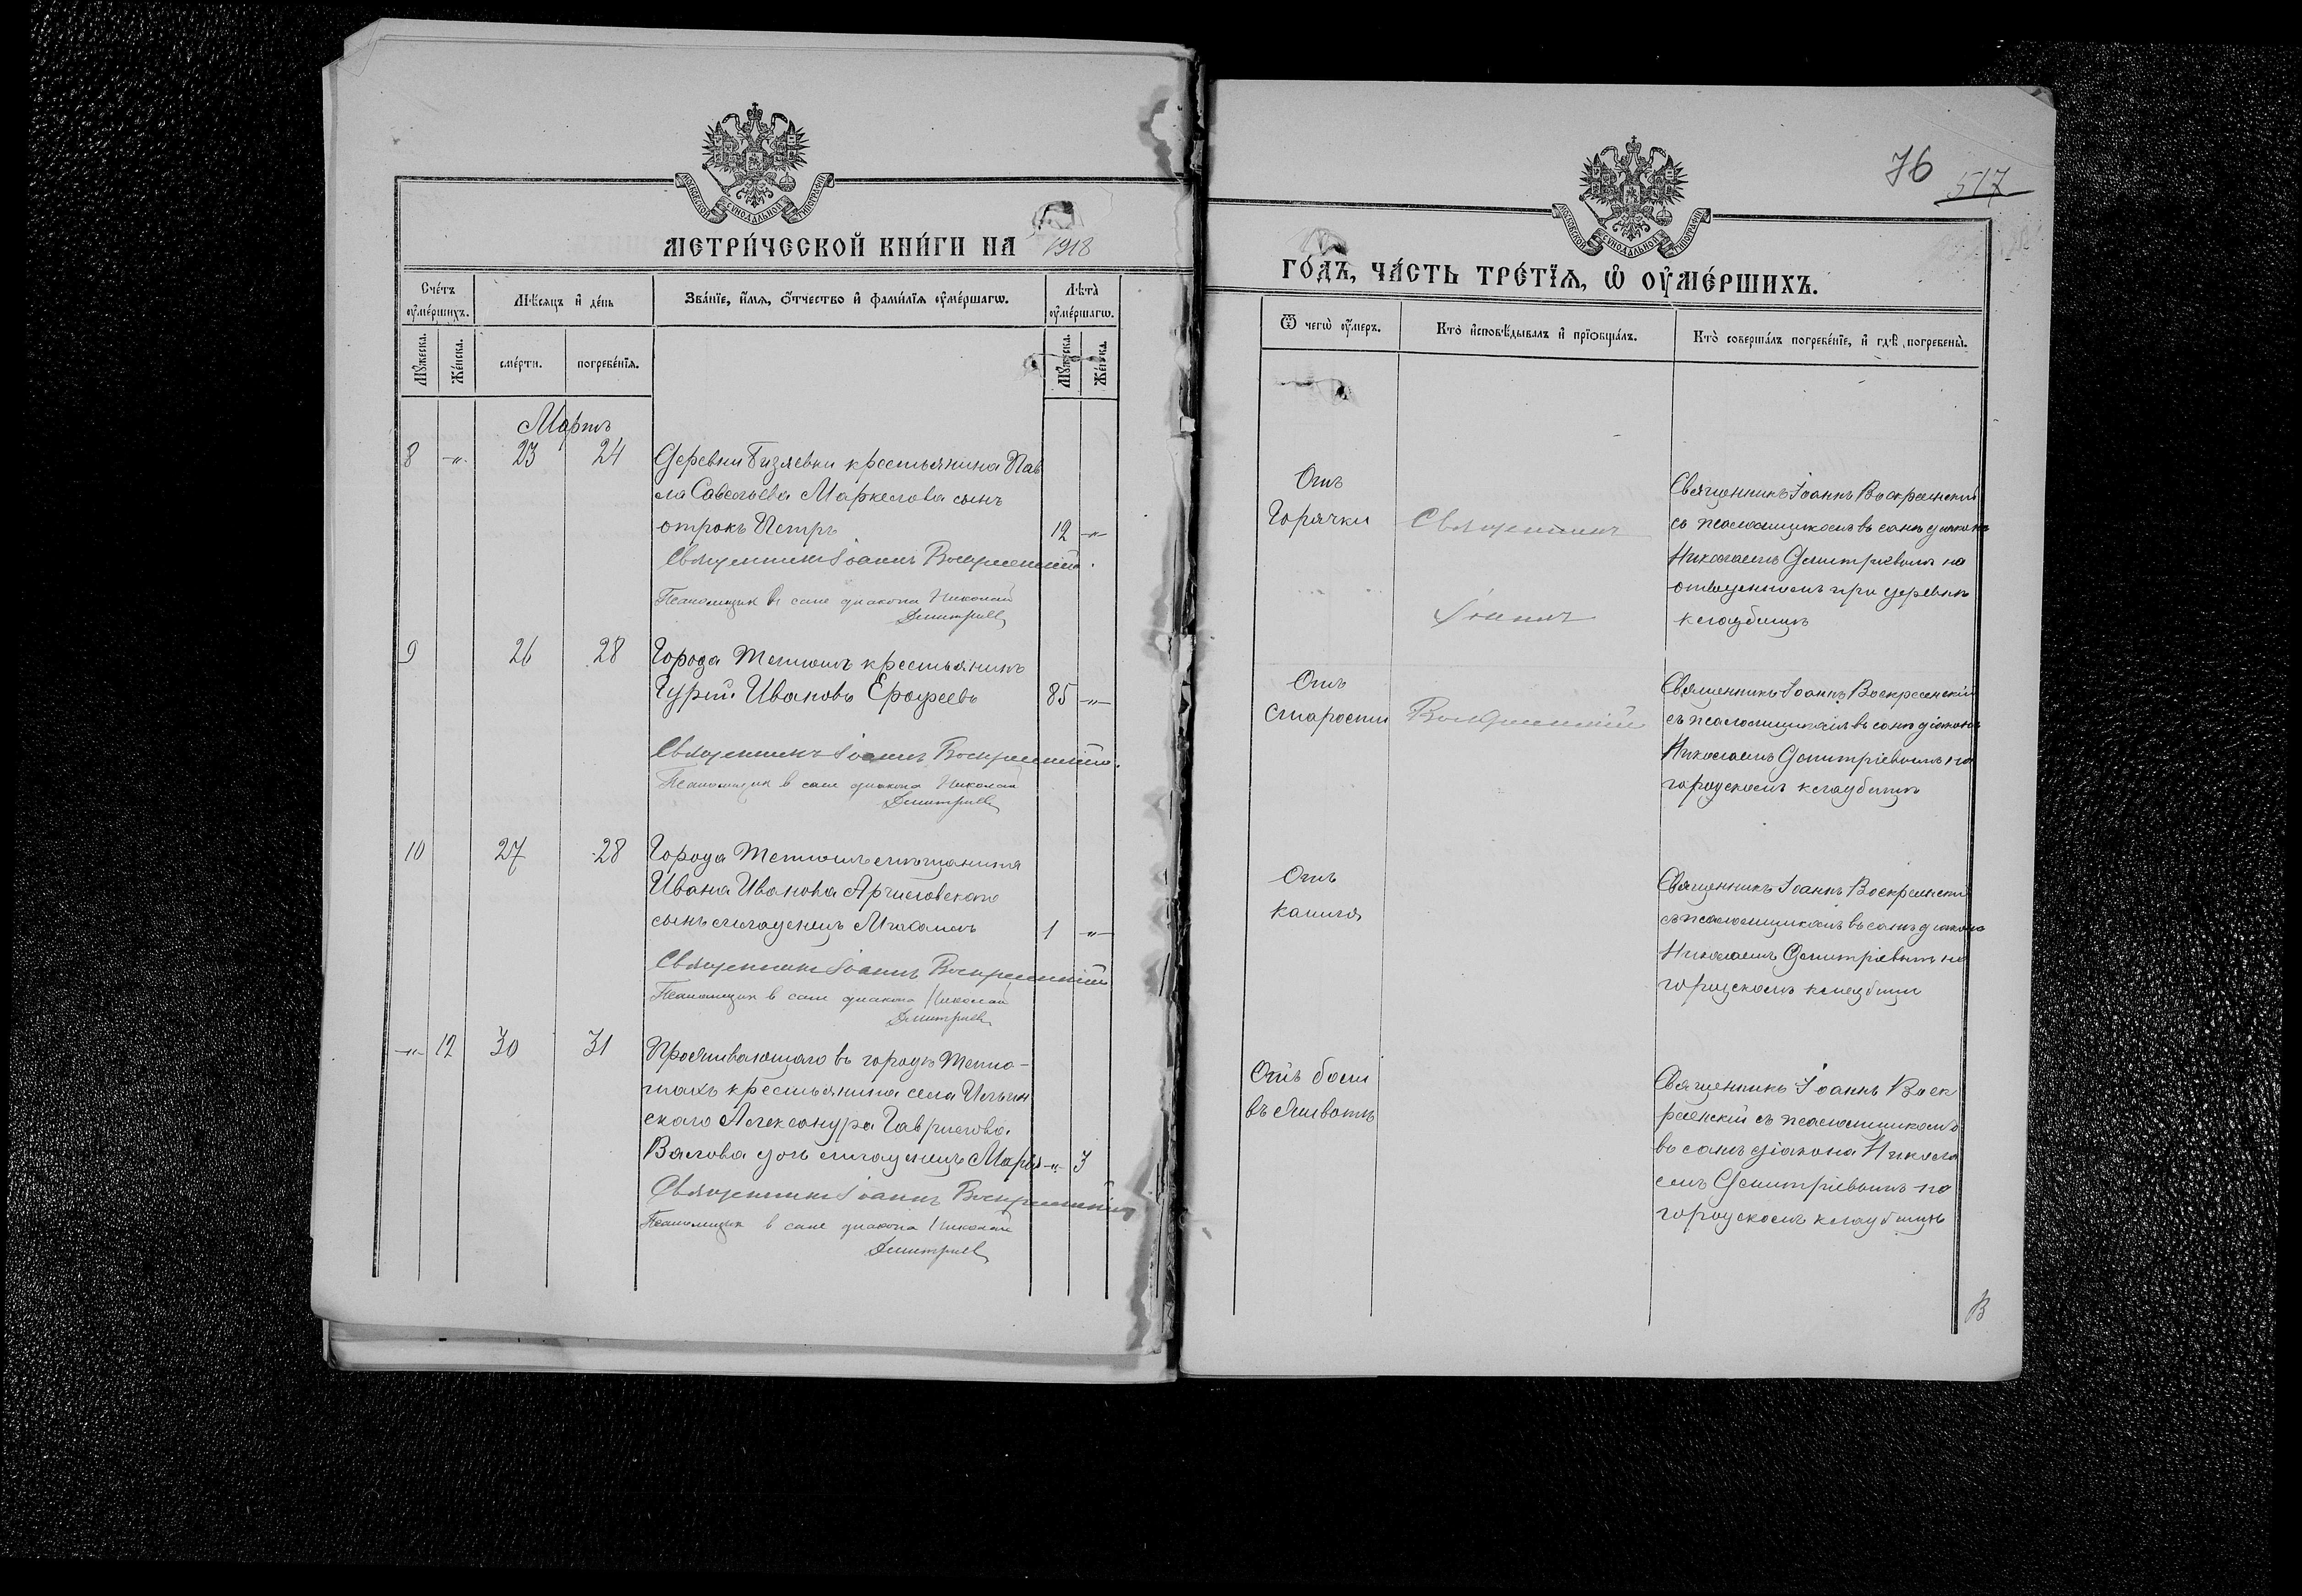 76
517
МЕТРИ́ЧЕСКОЙ КНИ́ГИ НА 1918
ГО́ДЪ, ЧА́СТЬ ТРЕ́ТЇЯ, Ѽ ОУ҆МЕ́РШИХЪ.
МОСКОВСКОЙ СѴНОДАЛЬНОЙ ТИПОГРАФІИ
МОСКОВСКОЙ СѴНОДАЛЬНОЙ ТИПОГРАФІИ
Сче́тъ оу҆ме́ршихъ.
Мѣ́сяцъ и҆ де́нь
Зва́нїе, и҆́мя, ѻ҆́тчество и҆ фами́лїя оу҆ме́ршагѡ.
Лѣта̀ оу҆ме́ршагѡ.
Мꙋ́жеска.
Же́нска.
сме́рти.
погребе́нїя.
Мꙋ́жеска.
Же́нска.
Ѿ чегѡ̀ оу҆́меръ.
Кто̀ и҆сповѣ́дывалъ и҆ прїѻбща́лъ.
Кто̀ соверша́лъ погребе́нїе, и҆ гдѣ̀ погребены̀.
Мартъ
8 -"- 23 24 Деревни Бизяевки крестьянина Пав
ла Савельева Маркелова сынъ
отрокъ Петръ 12 -"-
Священникъ Іоаннъ Воскресенскій.
Псаломщик в сане диакона Николай
Димитриев
Отъ
Горячки
Священникъ
Іоаннъ
Воскресенскій
Священникъ Іоаннъ Воскресенскій
съ псаломщикомъ въ санѣ діакона
Николаемъ Димитріевымъ на
отведенномъ при деревнѣ
кладбищѣ
9 26 28 Города Тетюшъ крестьянинъ
Гурій Ивановъ Ерофеевъ 85 -"-
Священникъ Іоаннъ Воскресенскій.
Псаломщик в сане диакона Николай
Димитриев
Отъ
старости
Священникъ Іоаннъ Воскресенскій
съ псаломщикомъ въ санѣ діакона
Николаемъ Димитріевымъ на
городскомъ кладбищѣ
10 27 28 Города Тетюшъ мѣщанина
Ивана Иванова
сынъ младенецъ Михаилъ 1 -"-
Священникъ Іоаннъ Воскресенскій
Псаломщик в сане диакона Николай
Димитриев
Отъ
кашля
Священникъ Іоаннъ Воскресенскій
съ псаломщикомъ въ санѣ діакона
Николаемъ Димитріевымъ на
городскомъ кладбищѣ
-"- 12 30 31 Проживающаго въ городѣ Тетю-
шахъ крестьянина села Ильин
скаго Александра Гаврилова
Валова дочь младенецъ Марія -"- 3
Священникъ Іоаннъ Воскресенскій
Псаломщик в сане диакона Николай
Димитриев
Отъ боли
въ животѣ
Священникъ Іоаннъ Воск
ресенскій съ псаломщикомъ
въ санѣ діакона Никола
емъ Димитріевымъ на
городскомъ кладбищѣ